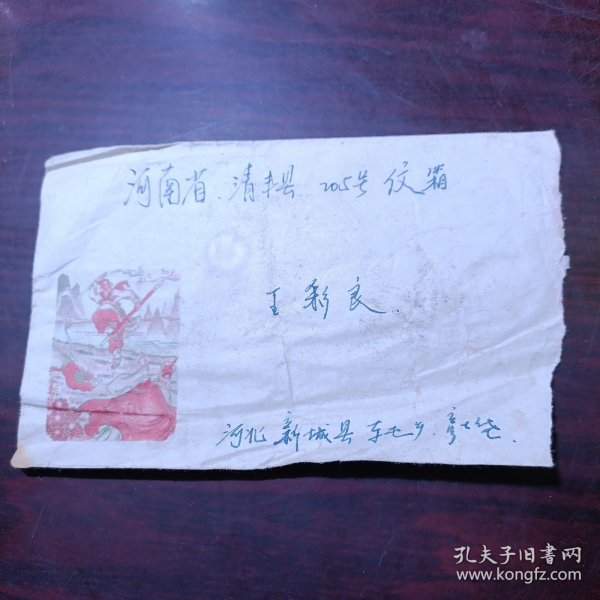 河南省.清丰县.205号信箱
王彩良.
河北新城县东屯乡.
孔夫子旧书网
www.kongfz.com